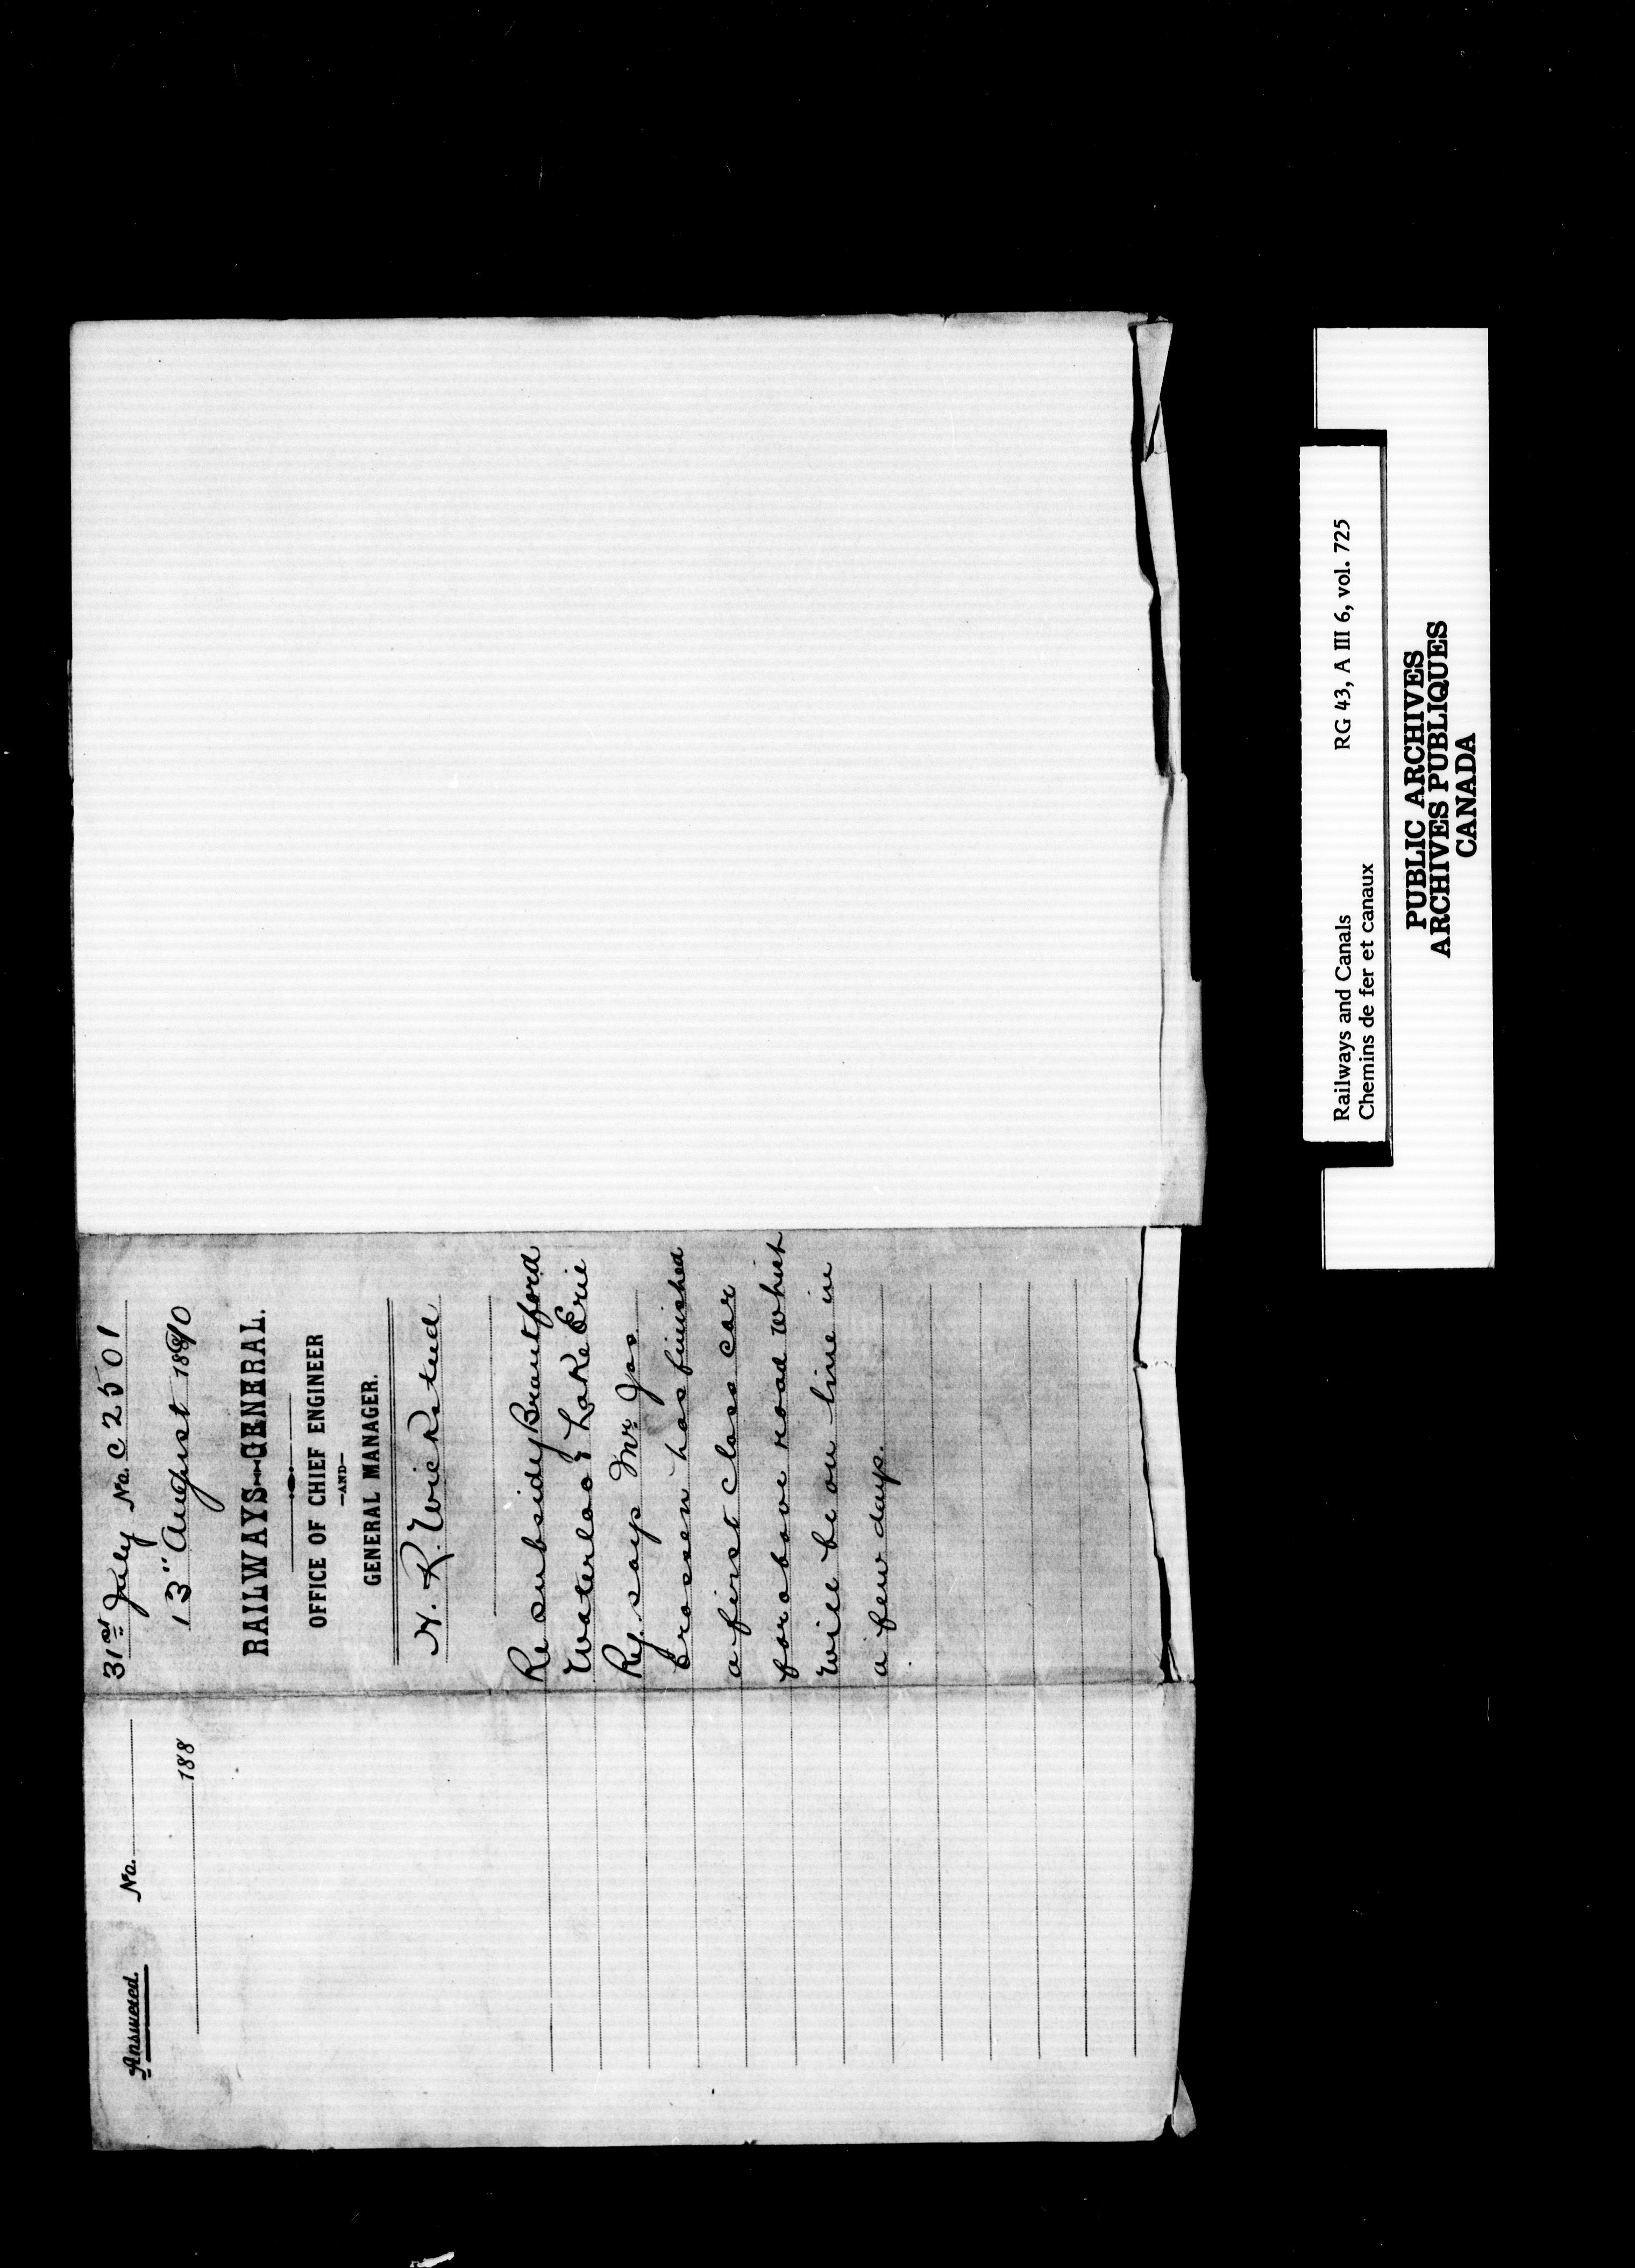 Answered. No.
188
31st July No. C 2501
13" August 1890
RAILWAYS-GENERAL.
OFFICE OF CHIEF ENGINEER
-AND-
GENERAL MANAGER.
H. K. Wicksteed
Re subsidy Brantford
Waterloo & Lake Erie
Ry. says Mr. Jas.
Crossen has finished
a first class car
for above road which
will be on line in
a few days.
Railways and Canals RG 43, A III 6, vol. 725
Chemins de fer et canaux
PUBLIC ARCHIVES
ARCHIVES PUBLIQUES
CANADA